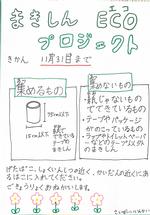 まきしん ECO
エコ
プロジェクト
きかん 11月31日まで
集めるもの
75mm以上
25mm以上
紙で
できている
テープの
まきしん
集めないもの
・紙じゃないもの
でできているもの
・テープやパッケージ
がのこっているもの
・ラップやトイレットペーパー
などのテープ以外の
まきしん
げたばこ、しょくいんしつの近く、かいだんの近くにあ
るはこに入れてください。
ごきょうりょくおねがいします。